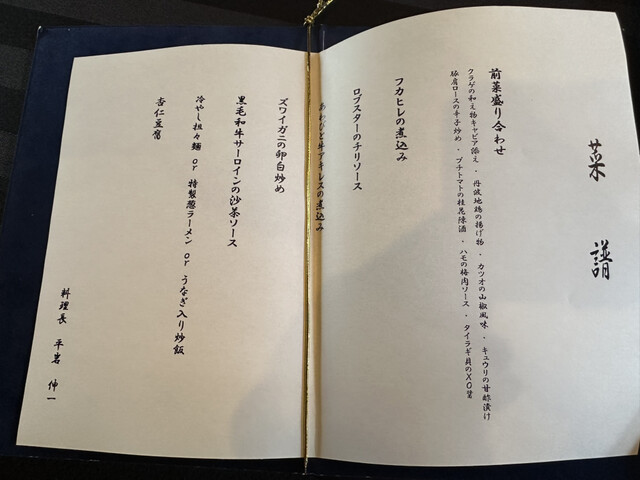 菜譜
前菜盛り合わせ
クラゲの和え物キャビア添え・丹波地鶏の揚げ物・カツオの山椒風味・キュウリの甘酢漬け
豚肩ロースの辛子炒め・プチトマトの桂花陳酒・ハモの梅肉ソース・タイラギ貝のXO醤
フカヒレの煮込み
ロブスターのチリソース
あわびと牛アキレスの煮込み
ズワイガニの卵白炒め
黒毛和牛サーロインの沙茶ソース
冷やし担々麺 or 特製葱ラーメン or うなぎ入り炒飯
杏仁豆腐
料理長 平岩 伸一